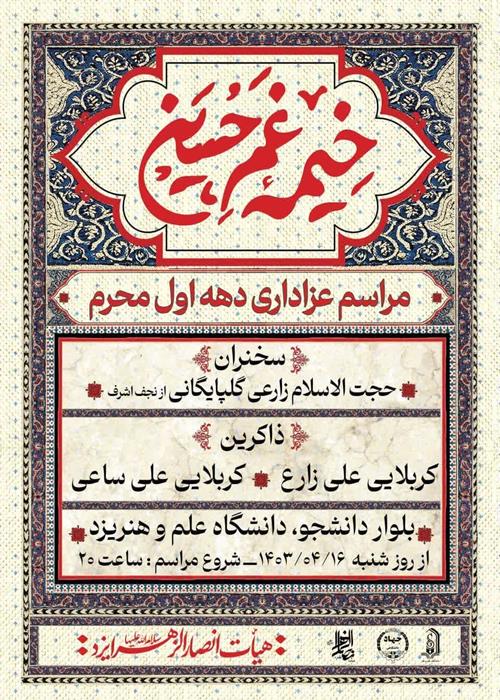 خیمه غم حسین
مراسم عزاداری دهه اول محرم
سخنران
حجت الاسلام زارعی گلپایگانی از نجف اشرف
ذاکرین
کربلایی علی زارع کربلایی علی ساعی
بلوار دانشجو، دانشگاه علم و هنریزد
از روز شنبه ۱۴۰۳/۰۴/۱۶ ــ شروع مراسم : ساعت ۲۰
هیأت انصار الزهرا سلام‌الله‌علیها یزد
جهاد